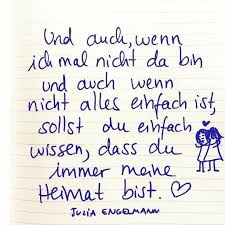 Und auch, wenn
ich mal nicht da bin
und auch wenn
nicht alles einfach ist,
sollst du einfach
wissen, dass du
immer meine
Heimat bist. ♡
JULIA ENGELMANN